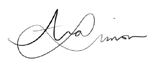 Ana Simon